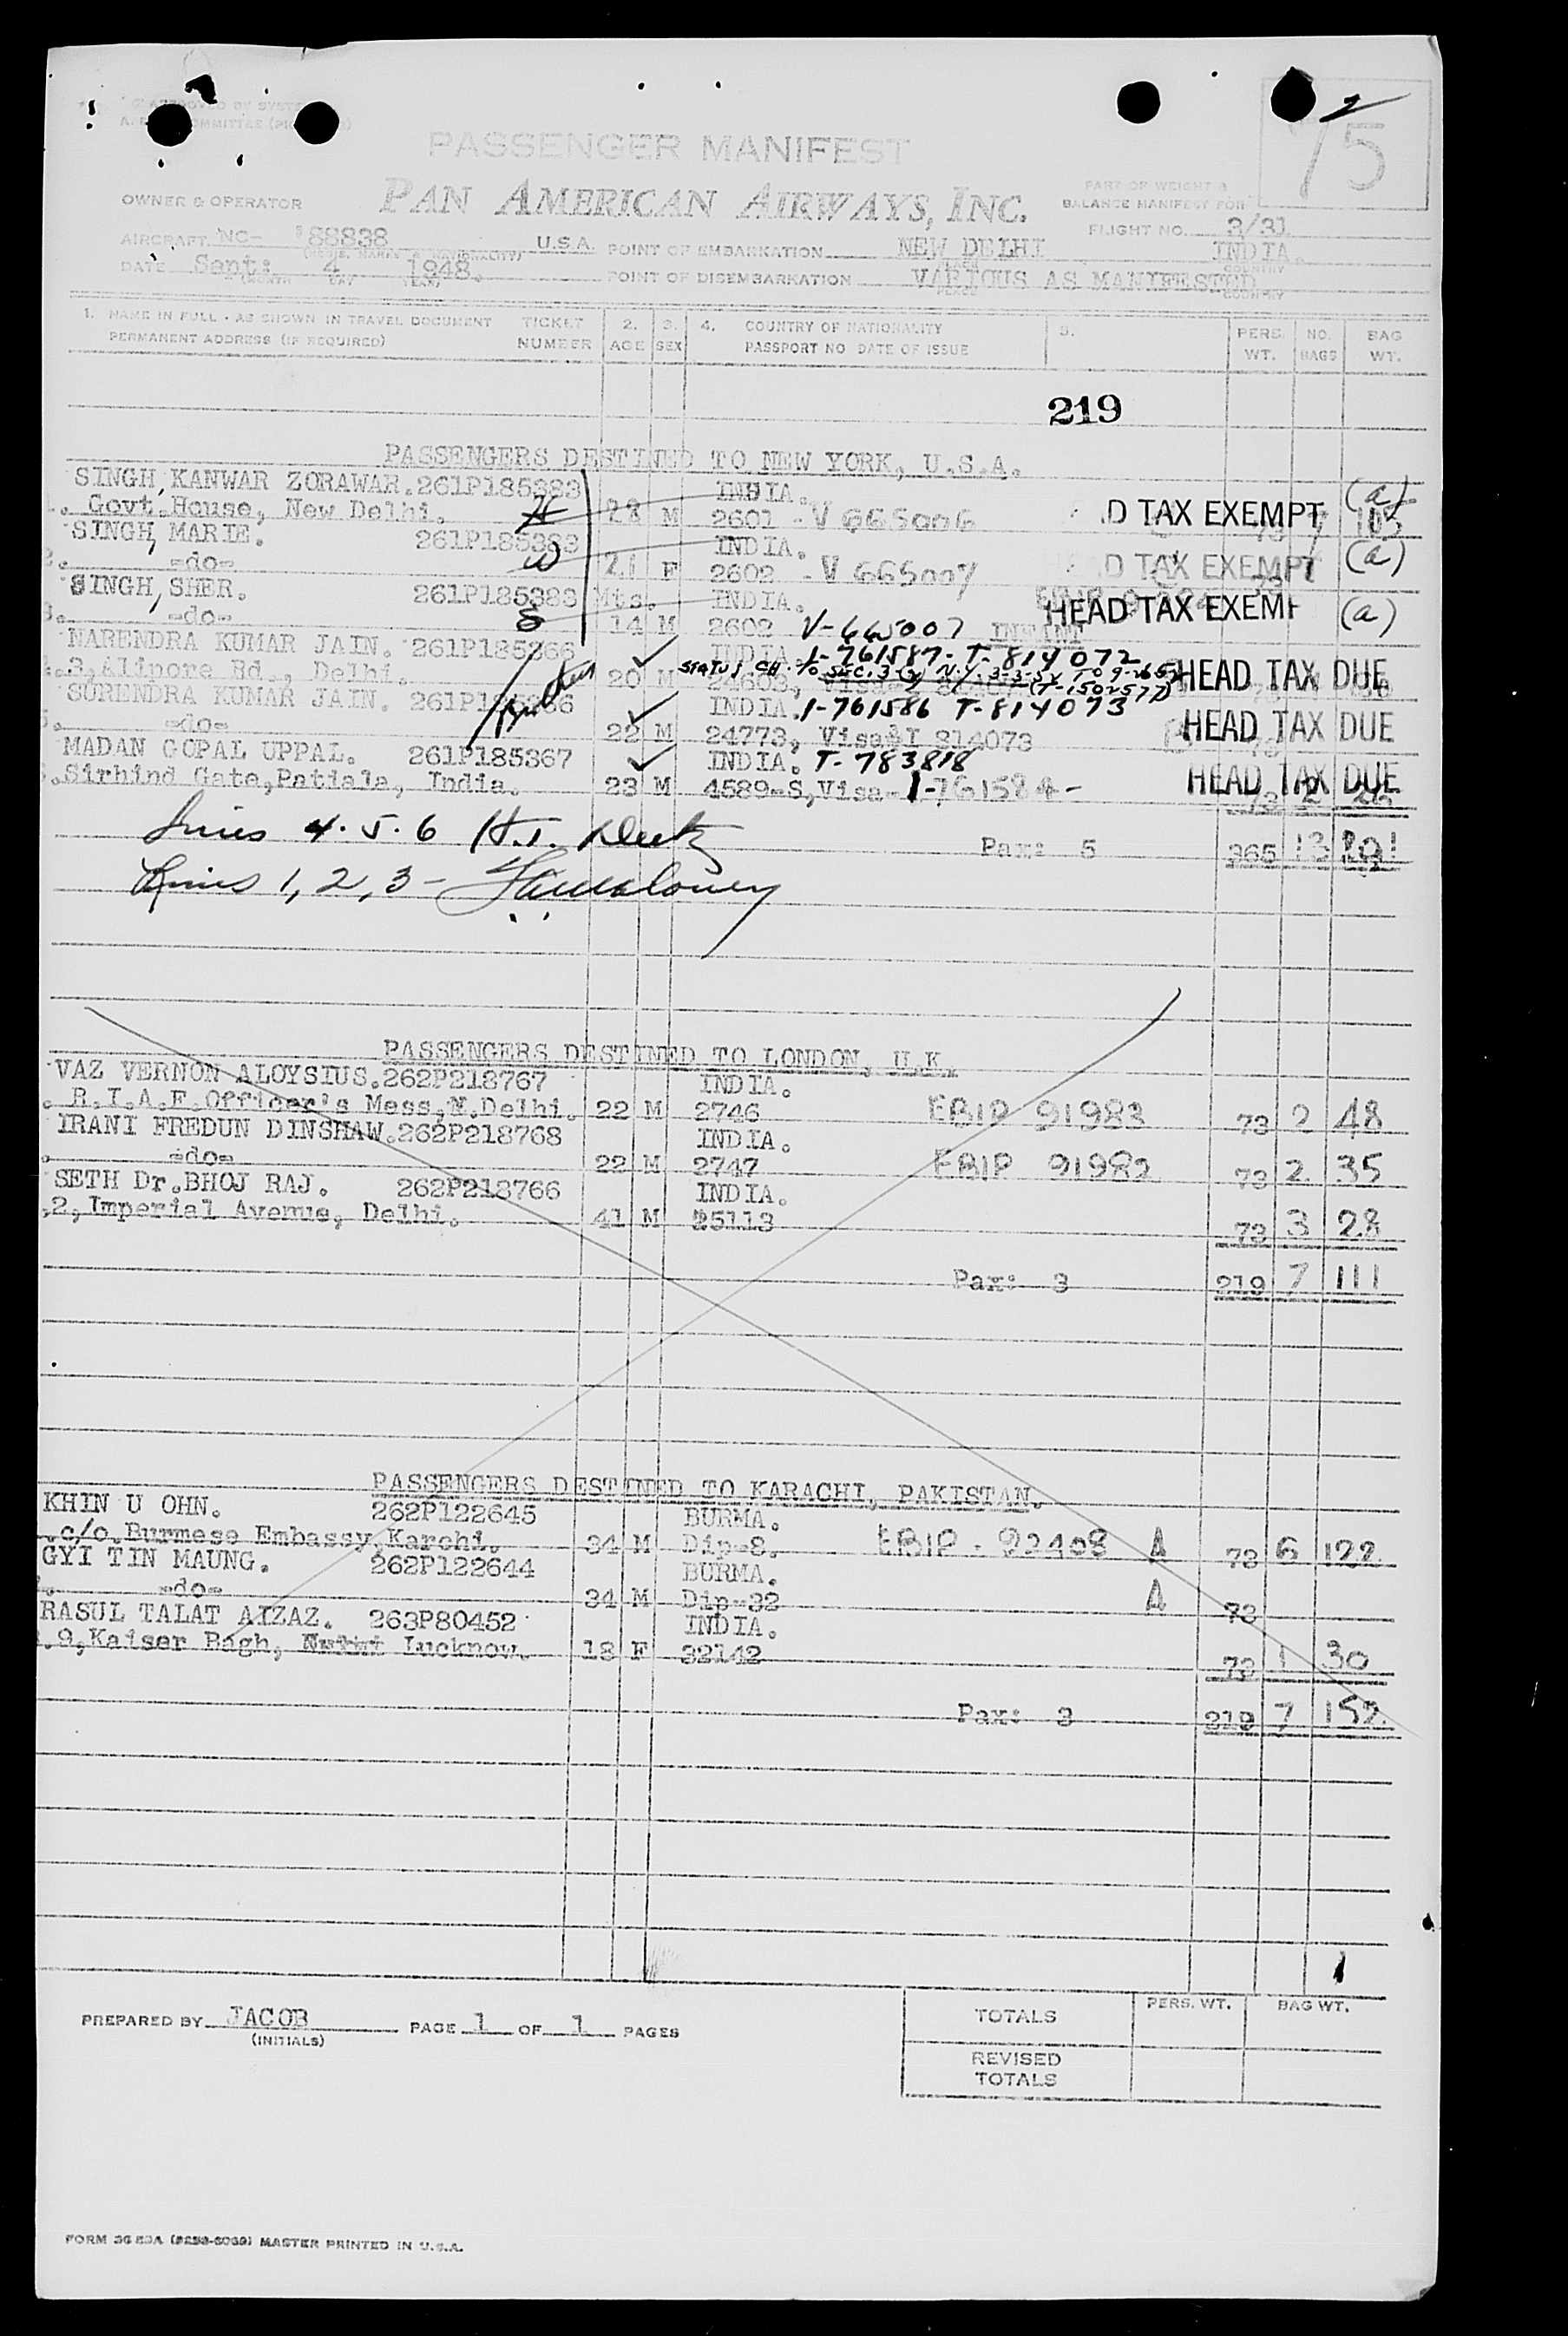 2
75
APPROVED BY
COMMITTEE
PASSENGER MANIFEST
OWNER & OPERATOR
PAN AMERICAN AIRWAYS, INC.
PART OF WEIGHT &
BALANCE MANIFEST FOR
FLIGHT NO. 3/31
AIRCRAFT NC- 88838 U.S.A. POINT OF EMBARKATION NEW DELHI INDIA.
DATE Sept: 4 1948. POINT OF DISEMBARKATION VARIOUS AS MANIFESTED
1. NAME IN FULL - AS SHOWN IN TRAVEL DOCUMENT TICKET 2. 3. 4. COUNTRY OF NATIONALITY 5. PERS. NO. BAG
PERMANENT ADDRESS (IF REQUIRED) NUMBER AGE SEX PASSPORT NO DATE OF ISSUE WT. BAGS WT.
219
PASSENGERS DESTINED TO NEW YORK, U.S.A.
SINGH, KANWAR ZORAWAR. 261P185383 INDIA.
Govt. House, New Delhi. H 28 M 2601 - V 665006 D TAX EXEMPT (a)
SINGH, MARIE. 261P185383 INDIA.
2. -do- W 21 F 2602 - V 665007 D TAX EXEMPT (a)
SINGH, SHER. 261P185383 Mts. INDIA.
3. -do- S 14 M 2602 V-665007 INFANT HEAD TAX EXEMP (a)
NARENDRA KUMAR JAIN. 261P185366 INDIA 1-761587-T-814072
Alipore Rd., Delhi. 20 M 24603, STATUS CH. HEAD TAX DUE
SURENDRA KUMAR JAIN. 261P185366 INDIA. 1-761586 T-814073
-do- 22 M 24773, Visa I 814073 HEAD TAX DUE
MADAN GOPAL UPPAL. 261P185367 INDIA. T-783818
Sirhind Gate, Patiala, India. 23 M 4589-S, Visa- 1-761584- HEAD TAX DUE
Lines 4.5.6 H.T.
Pax: 5 365 13
Lines 1, 2, 3 -
PASSENGERS DESTINED TO LONDON, U.K.
VAZ VERNON ALOYSIUS. 262P218767 INDIA.
R.I.A.F. Officer's Mess, N.Delhi. 22 M 2746 EBIP 91983 73 2 48
IRANI FREDUN DINSHAW. 262P218768 INDIA.
-do- 22 M 2747 EBIP 91982 73 2 35
SETH Dr. BHOJ RAJ. 262P218766 INDIA.
2, Imperial Avenue, Delhi. 41 M 25113 73 3 28
Pax: 3 219 7 111
PASSENGERS DESTINED TO KARACHI, PAKISTAN.
KHIN U OHN. 262P122645 BURMA.
c/o. Burmese Embassy, Karchi. 34 M Dip-8. EBIP - 92408 A 73 6 122
GYI TIN MAUNG. 262P122644 BURMA.
-do- 34 M Dip-32 A 73
RASUL TALAT AIZAZ. 263P80452 INDIA.
9, Kaiser Bagh, Lucknow. 18 F 32142 73 1 30
Pax: 3 219 7 152
PREPARED BY JACOB PAGE 1 OF 1 PAGES
(INITIALS)
TOTALS PERS. WT. BAG WT.
REVISED
TOTALS
FORM 36 83A MASTER PRINTED IN U.S.A.